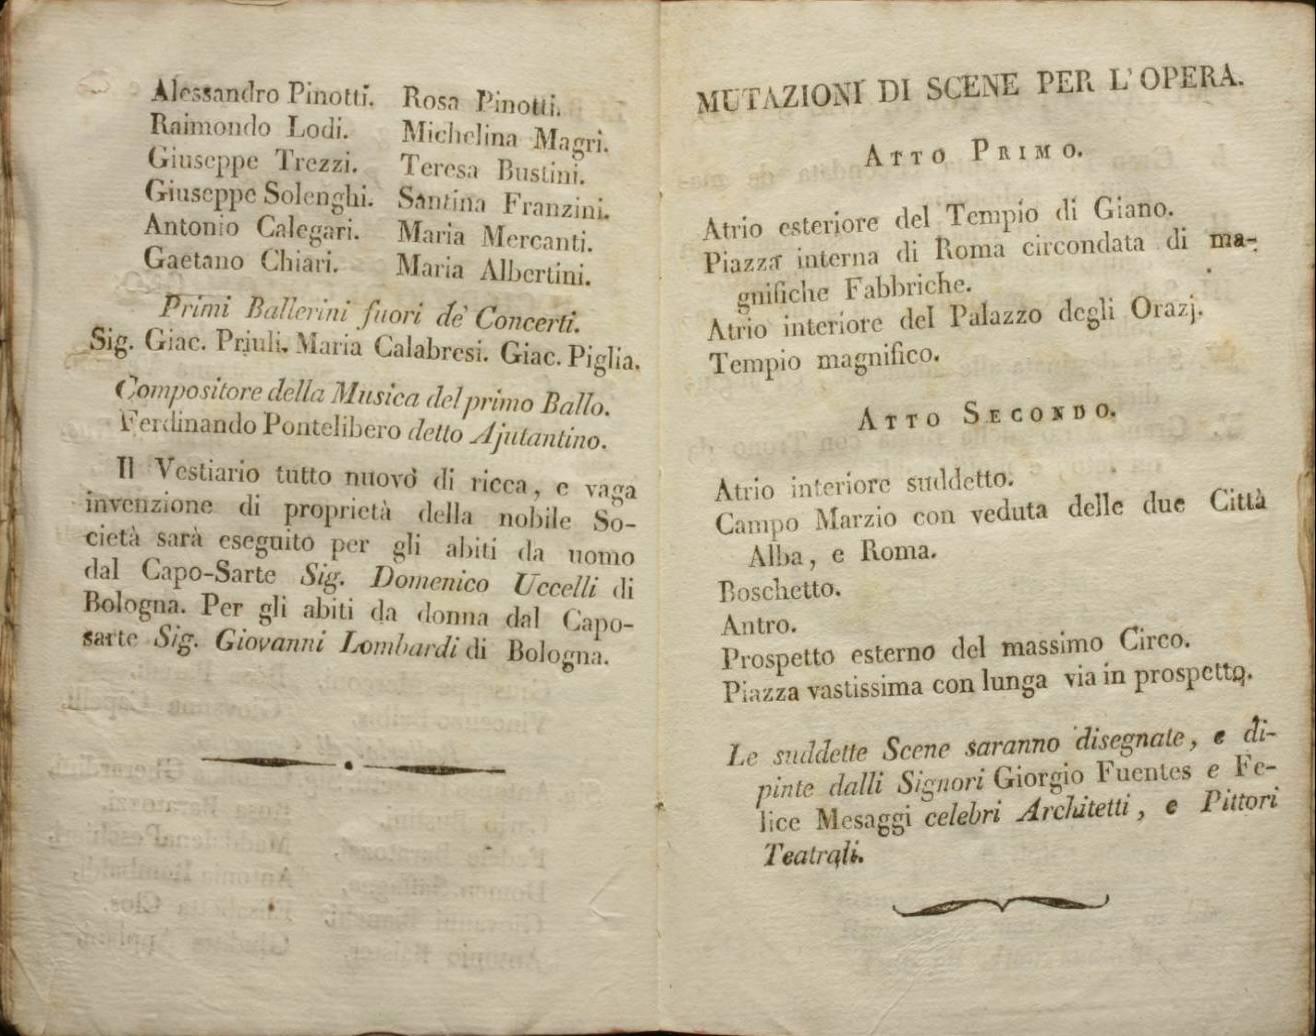 Alessandro Pinotti. Rosa Pinotti.
Raimondo Lodi. Michelina Magri.
Giuseppe Trezzi. Teresa Bustini.
Giuseppe Solenghi. Santina Franzini.
Antonio Calegari. Maria Mercanti.
Gaetano Chiari. Maria Albertini.
Primi Ballerini fuori de' Concerti.
Sig. Giac. Priuli. Maria Calabresi. Giac. Piglia.
Compositore della Musica del primo Ballo.
Ferdinando Pontelibero detto Ajutantino.
Il Vestiario tutto nuovo di ricca, e vaga
invenzione di proprietà della nobile So-
cietà sarà eseguito per gli abiti da uomo
dal Capo-Sarte Sig. Domenico Uccelli di
Bologna. Per gli abiti da donna dal Capo-
sarte Sig. Giovanni Lombardi di Bologna.
MUTAZIONI DI SCENE PER L'OPERA.
ATTO PRIMO.
Atrio esteriore del Tempio di Giano.
Piazza interna di Roma circondata di ma-
gnifiche Fabbriche.
Atrio interiore del Palazzo degli Orazj.
Tempio magnifico.
ATTO SECONDO.
Atrio interiore suddetto.
Campo Marzio con veduta delle due Città
Alba, e Roma.
Boschetto.
Antro.
Prospetto esterno del massimo Circo.
Piazza vastissima con lunga via in prospetto.
Le suddette Scene saranno disegnate, e di-
pinte dalli Signori Giorgio Fuentes e Fe-
lice Mesaggi celebri Architetti, e Pittori
Teatrali.